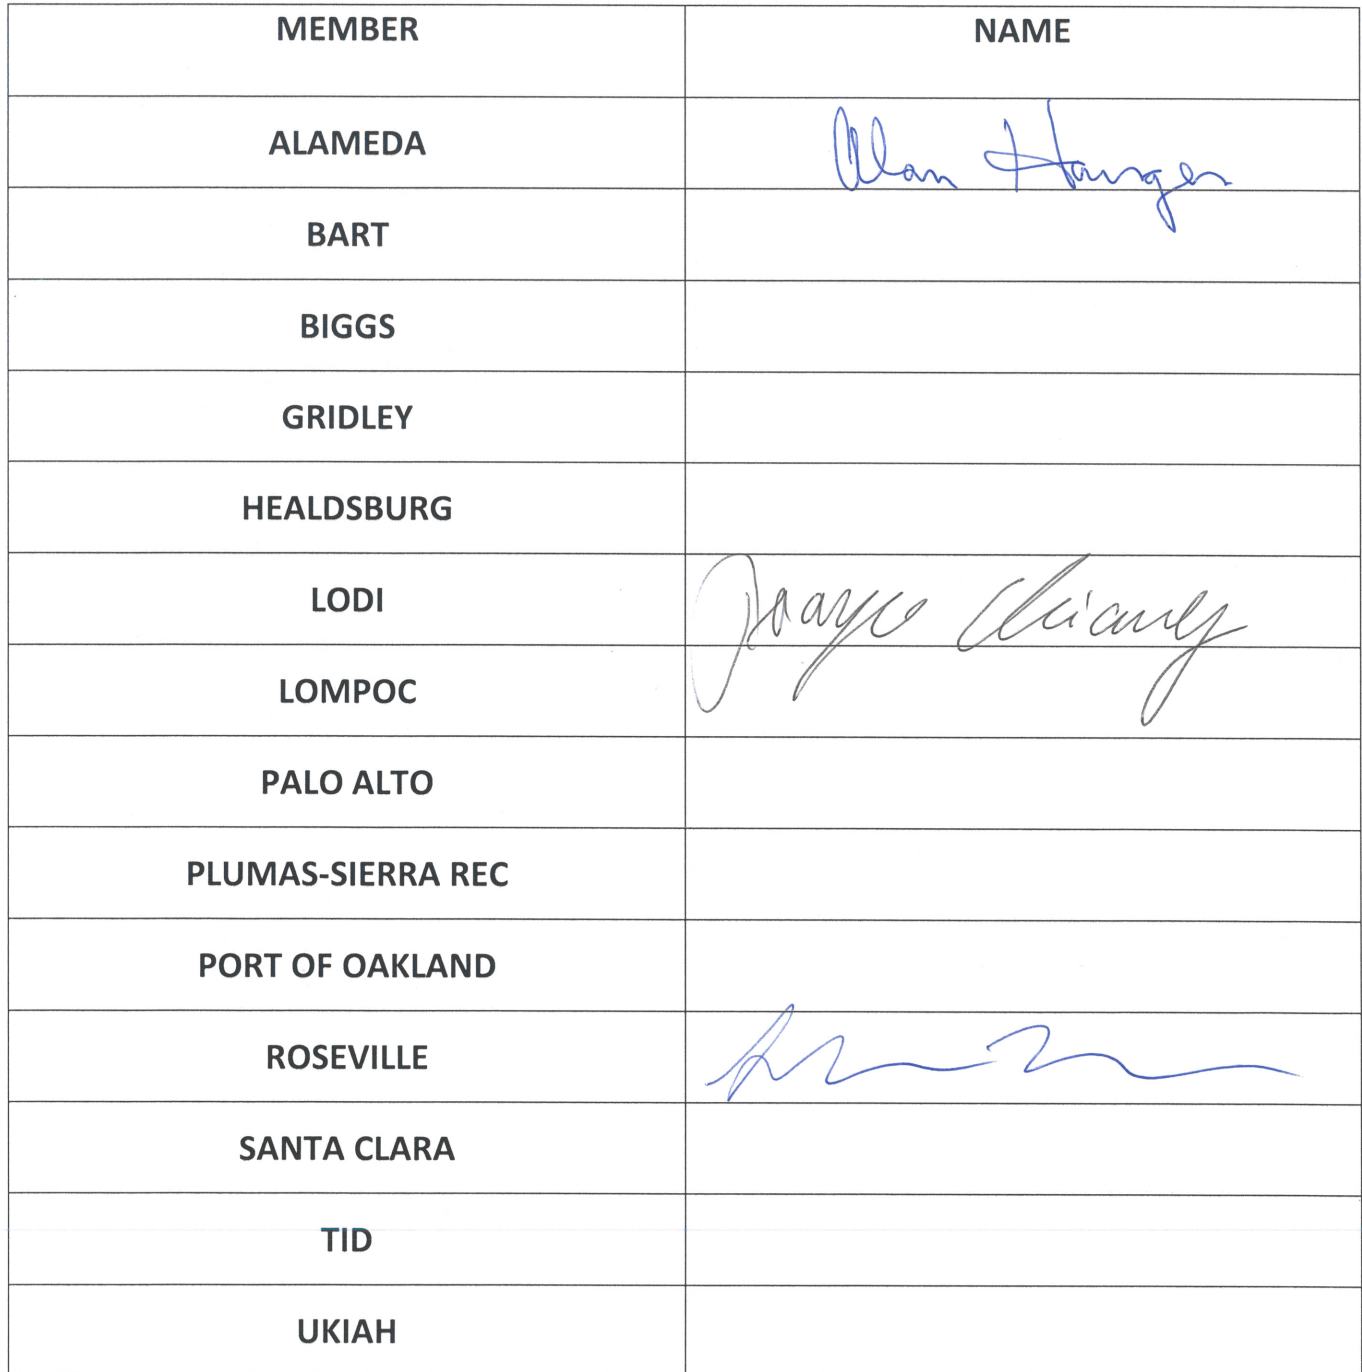 MEMBER NAME
ALAMEDA Alan Hanger
BART
BIGGS
GRIDLEY
HEALDSBURG
LODI Chiang
LOMPOC
PALO ALTO
PLUMAS-SIERRA REC
PORT OF OAKLAND
ROSEVILLE
SANTA CLARA
TID
UKIAH